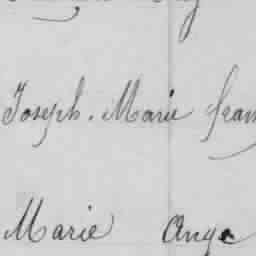 Joseph. Marie fran
Marie Ange